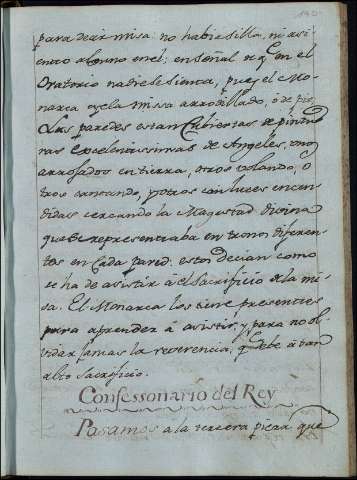 para decir misa. no habia silla, ni asi
ento alguno en el: en señal de q̃ en el
Oratorio nadie se sienta, pues el Mo
narca oye la missa arrodillado, ó de pie.
Las paredes estan Cubiertas de pintu
ras excelentissimas de Angeles, unos
arrojados en tierra, otros volando, o
tros cantando, y otros con luces encen
didas cercando la Magestad divina
que se representaba en tronos diferen
tes en Cada pared: estos decian como
se ha de asistir á el Sacrificio de la mi
sa. El Monarca los tiene presentes
para aprender á asistir, y para no ol
vidar jamas la reverencia, q̃ debe á tan
alto Sacrificio.
Confessonario del Rey
Pasamos a la tercera pieza, que